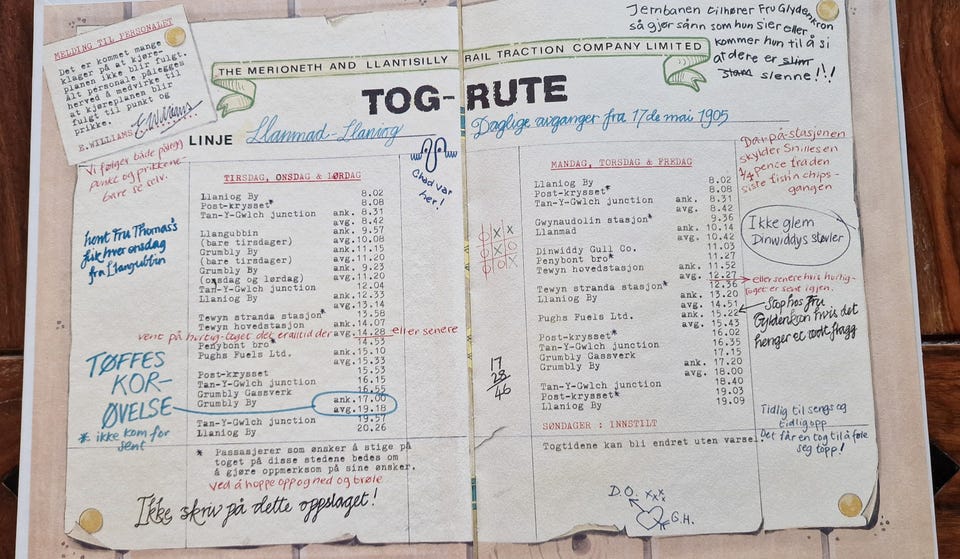 MELDING TIL PERSONALET
Det er kommet mange
klager på at kjøre-
planen ikke blir fulgt.
Alt personale pålegges
herved å medvirke til
at kjøreplanen blir
fulgt til punkt og
prikke.
E.WILLIAMS E.Williams
Vi følger både pålegg
punkt og prikkene-
bare se selv.
Jernbanen tilhører Fru Glydenkron
så gjør sånn som hun sier eller
kommer hun til å si
at dere er slim
slemme!!!
THE MERIONETH AND LLANTISILLY RAIL TRACTION COMPANY LIMITED
TOG-RUTE
LINJE Llanmad-Llaniog Daglige avganger fra 17de mai 1905
Chad var
her!
TIRSDAG, ONSDAG & LØRDAG
Llaniog By 8.02
Post-krysset* 8.08
Tan-Y-Gwlch junction ank. 8.31
avg. 8.42
Llangubbin ank. 9.57
(bare tirsdager) avg. 10.08
Grumbly By ank. 11.15
(bare tirsdager) avg. 11.20
Grumbly By ank. 9.23
(onsdag og lørdag) avg. 11.20
Tan-Y-Gwlch junction 12.04
Llaniog By ank. 12.33
avg. 13.14
Tewyn stranda stasjon* 13.58
Tewyn hovedstasjon ank. 14.07
avg. 14.28 eller senere
vent på hurtig-toget det er alltid der
Penybont bro* 14.53
Pughs Fuels Ltd. ank. 15.10
avg. 15.33
Post-krysset 15.53
Tan-Y-Gwlch junction 16.15
Grumbly Gassverk 16.55
Grumbly By ank. 17.00
avg. 19.18
Tan-Y-Gwlch junction 19.57
Llaniog By 20.26
* Passasjerer som ønsker å stige på
toget på disse stedene bedes om
å gjøre oppmerksom på sine ønsker.
ved å hoppe opp og ned og brøle
Ikke skriv på dette oppslaget!
hent Fru Thomas's
fik hver onsdag
fra Llangubbin
TØFFES
KOR-
ØVELSE
* ikke kom for
sent
MANDAG, TORSDAG & FREDAG
Llaniog By 8.02
Post-krysset* 8.08
Tan-Y-Gwlch junction ank. 8.31
avg. 8.42
Gwynaudolin stasjon* 9.36
Llanmad ank. 10.14
avg. 10.42
Dinwiddy Gull Co. 11.03
Penybont bro* 11.27
Tewyn hovedstasjon ank. 11.52
avg. 12.27
Tewyn stranda stasjon* 12.36
Llaniog By ank. 13.20
avg. 14.51
Pughs Fuels Ltd. ank. 15.22
avg. 15.43
Post-krysset* 16.02
Tan-Y-Gwlch junction 16.35
Grumbly Gassverk 17.15
Grumbly By ank. 17.20
avg. 18.00
Tan-Y-Gwlch junction 18.40
Post-krysset* 19.03
Llaniog By 19.09
SØNDAGER : INNSTILT
Togtidene kan bli endret uten varsel
O X X
O X O
O O X
17
28
46
Dai-på-stasjonen
skylder Snillesen
1/4 pence fra den
siste fish'n chips-
gangen
Ikke glem
Dinwiddys støvler
eller senere hvis hurtig-
toget er sent igjen.
Stop hos Fru
Gyldenkron hvis det
henger et rødt flagg
Tidlig til sengs og
tidlig opp
Det får en tog til å føle
seg topp!
D.O. xxx
G.H.